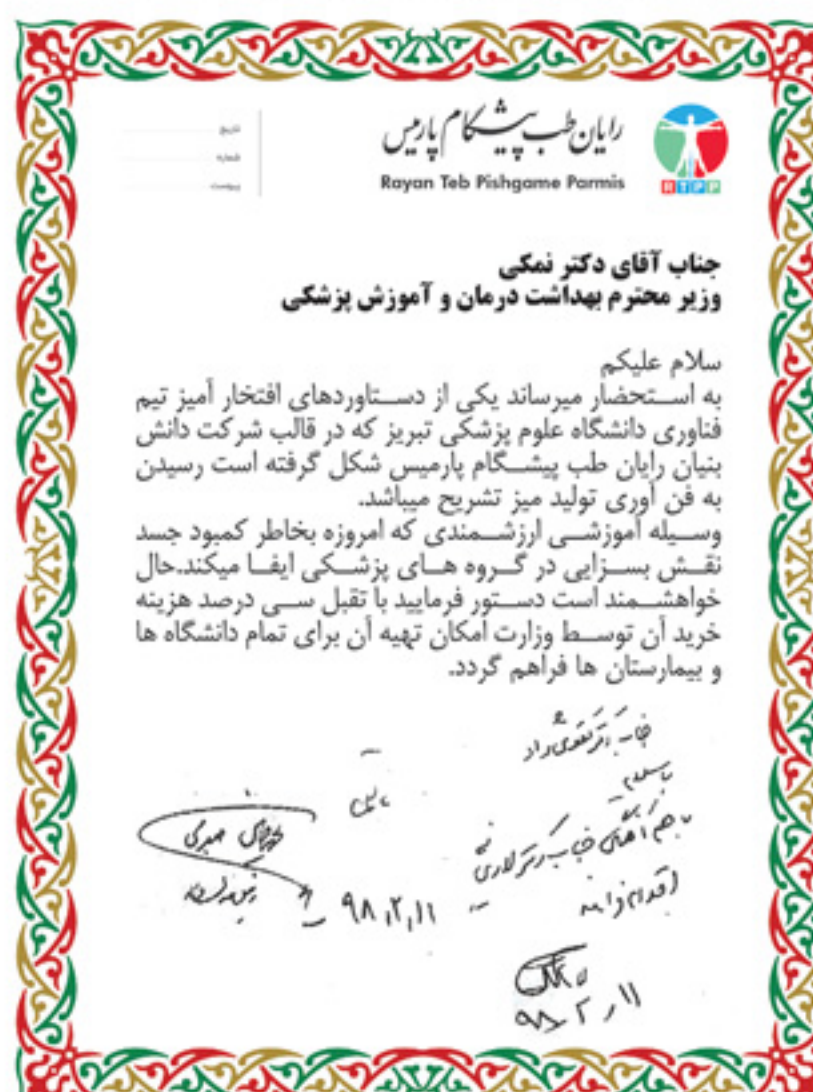 رایان طب پیشگام پارمیس
Rayan Teb Pishgame Parmis
RTPP
تاریخ
شماره
پیوست
جناب آقای دکتر نمکی
وزیر محترم بهداشت درمان و آموزش پزشکی
سلام علیکم
به استحضار میرساند یکی از دستاوردهای افتخار آمیز تیم
فناوری دانشگاه علوم پزشکی تبریز که در قالب شرکت دانش
بنیان رایان طب پیشگام پارمیس شکل گرفته است رسیدن
به فن آوری تولید میز تشریح میباشد.
وسیله آموزشی ارزشمندی که امروزه بخاطر کمبود جسد
نقش بسزایی در گروه های پزشکی ایفا میکند.حال
خواهشمند است دستور فرمایید با تقبل سی درصد هزینه
خرید آن توسط وزارت امکان تهیه آن برای تمام دانشگاه ها
و بیمارستان ها فراهم گردد.
جناب دکتر تقوی راد
با سلام
با هم آهنگی جناب دکتر لاریجانی
اقدام فرمایید
۹۸,۲,۱۱
۹۸,۲,۱۱